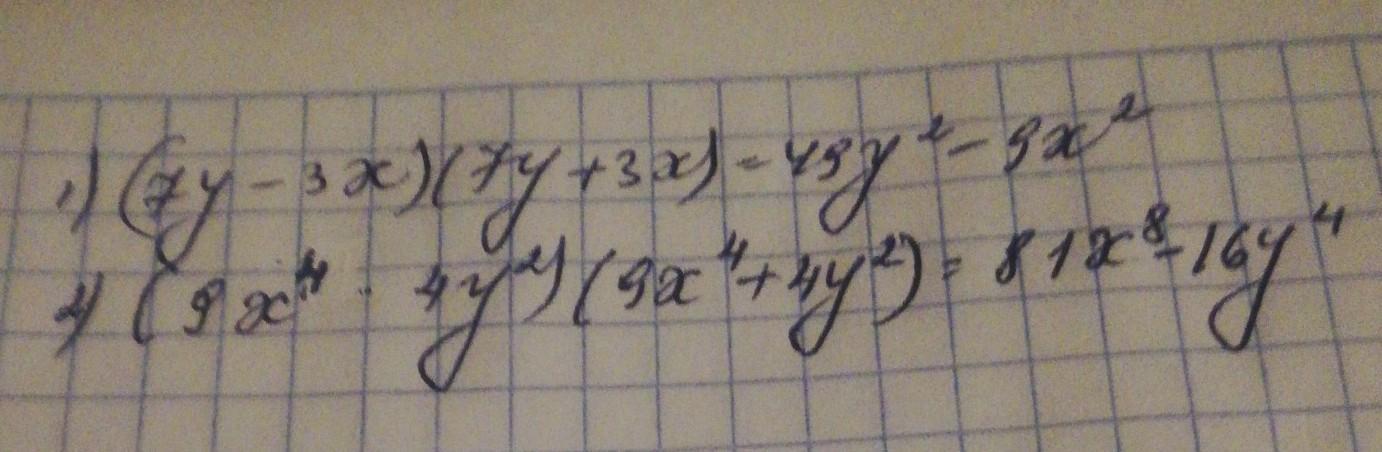 1) (7y - 3x)(7y + 3x) = 49y² - 9x²
2) (9x⁴ - 4y²)(9x⁴ + 4y²) = 81x⁸ - 16y⁴